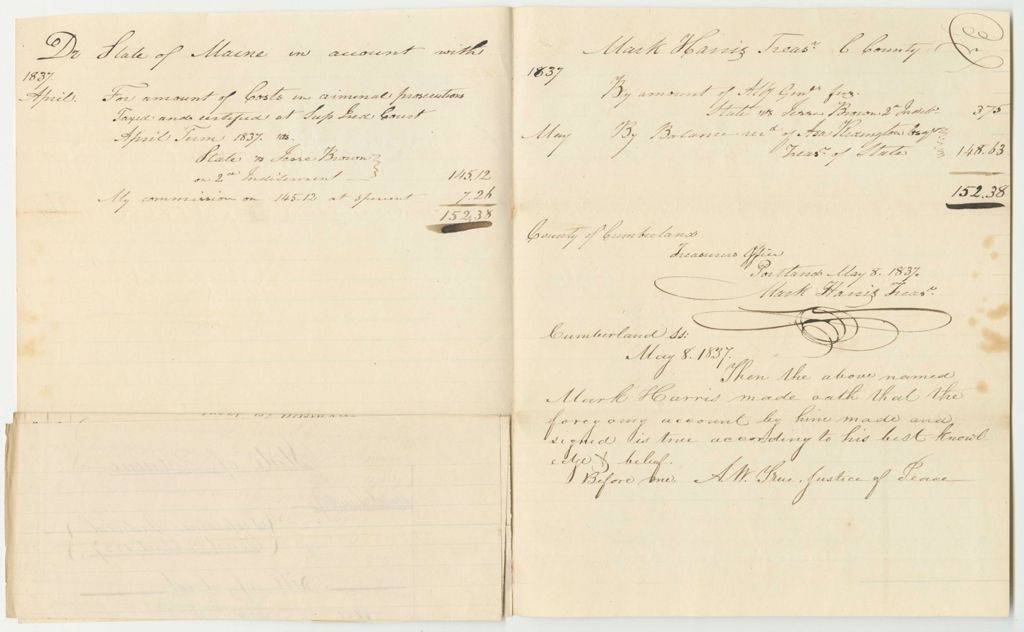 Dr State of Maine in account with
1837.
April. For amount of Costs in criminal prosecutions
Taxed and certified at Sup Jud Court
April Term 1837. viz.
State vs Jesse Brown
on 2nd Indictment 145.12
My commission on 145.12 at 5 percent 7.26
152.38
Mark Harris Treasr. C County Cr
1837
By amount of Atty Genls fee.
State vs Jesse Brown 2d Indict. 3.75
May By Balance recd of Asa Redington Esqr
Treasr of State 148.63
152.38
County of Cumberland
Treasurers Office
Portland May 8. 1837.
Mark Harris Treasr.
Cumberland Ss.
May 8. 1837.
Then the above named
Mark Harris made oath that the
foregoing account by him made and
signed is true according to his best knowl
edge & belief.
Before me. A.W. True, Justice of Peace